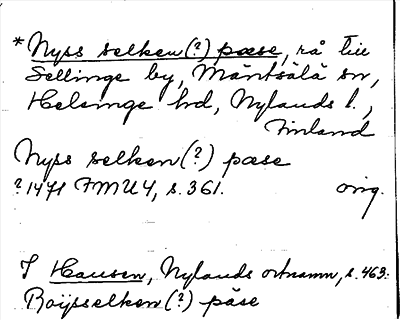 *Nyss selken(?) pæse, rå till
Sellinge by, Mäntsälä sn,
Helsinge hd, Nylands l.,
Finland
Nyss selken(?) pæse
? 1471 FMU 4, s. 361. orig.
I Hausen, Nylands ortnamn, s. 463:
Roijsselken(?) påse